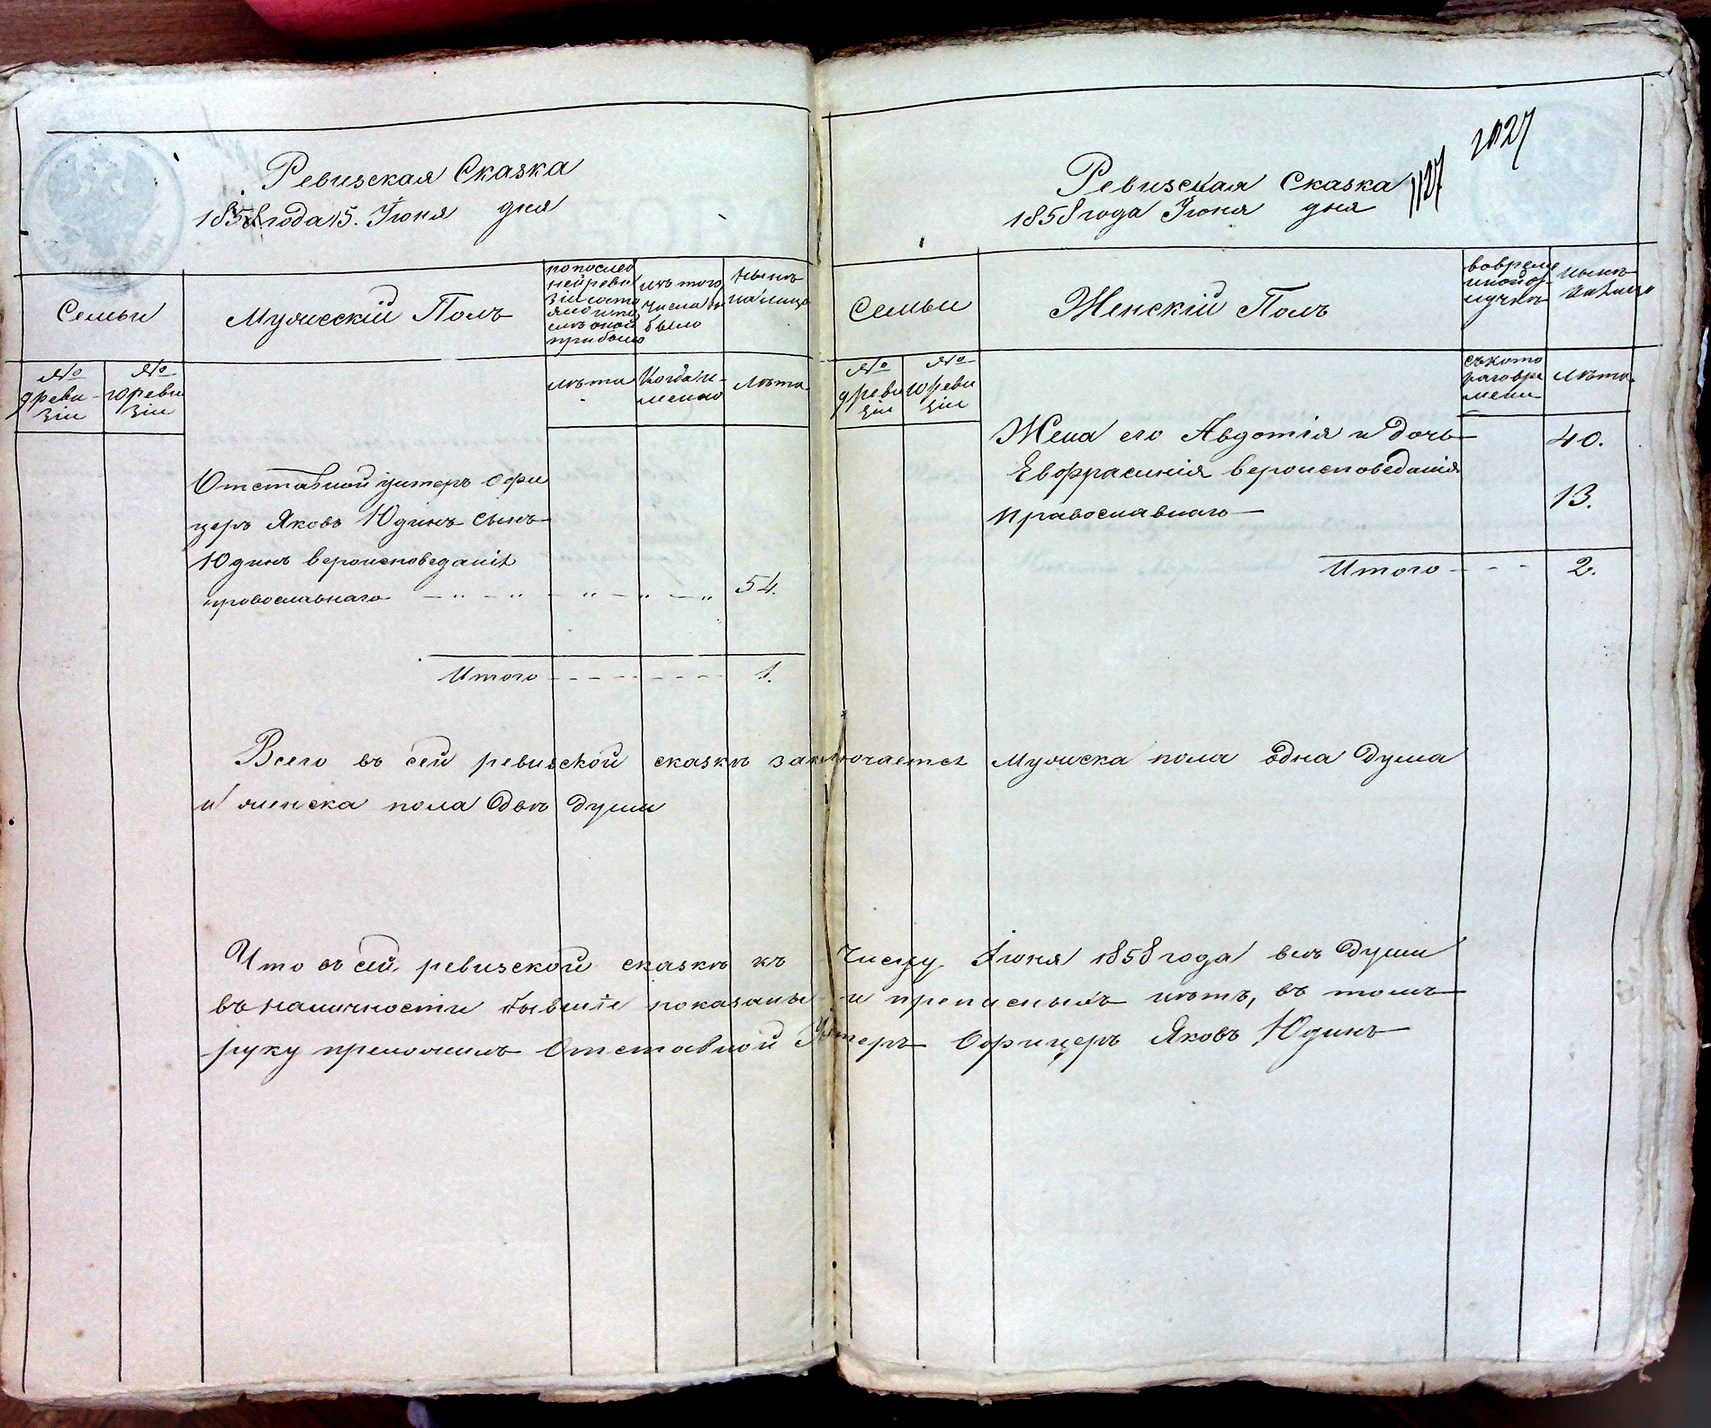 Ревизская Сказка
1858 года 15. Іюня дня
Семьи
Мужескій Полъ
по послед
ней реви
зіи состо
яло и по
слѣ оной
прибыло
изъ того
числа вы
было
Нынѣ
на лицо
№
9 реви
зіи
№
10 реви
зіи
лѣта
Когда и
менно
лѣта
Отставной унтеръ офи
церъ Яковъ Юдинъ сынъ
Юдинъ вероисповеданія
провославнаго — „ — „ — „ — „ — „ 54.
Итого 1.
Ревизская Сказка
1858 года Іюня дня
1127
Семьи
Женскій Полъ
во време
нной от
лучкѣ
Нынѣ
на лицо
№
9 реви
зіи
№
10 реви
зіи
съ кото
раго вре
мени
лѣта
Жена его Авдотія и дочь 40.
Евфрасинія вероисповеданія
православнаго 13.
Итого 2.
Всего въ сей ревизской сказкѣ заключается мужска пола одна душа
и женска пола двѣ души
Что въ сей ревизской сказкѣ къ числу Іюня 1858 года всѣ души
въ наличности бывшіе показаны и прописныхъ нѣтъ, въ томъ
руку приложилъ Отставной Унтеръ Офицеръ Яковъ Юдинъ